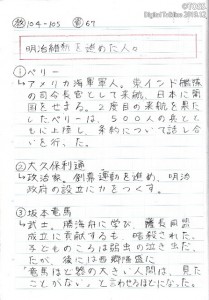 教104-105 資67
明治維新を進めた人。
① ペリー
↳アメリカ海軍軍人。東インド艦隊
の司令長官として来航。日本に開
国をせまる。2度目の来航を果た
したペリーは、500人の兵とと
もに上陸し、条約について話し合
いを行、た。
② 大久保利通
↳政治家。倒幕運動を進め、明治
政府の設立に力をつくす。
③ 坂本竜馬
↳武士。勝海舟に学び、薩長同盟
成立に貢献するも、暗殺された。
子どものころは弱虫の泣き虫だっ
たが、後には西郷隆盛に
「竜馬ほど器の大きい人間は、見た
ことがない」と言わせるほどになった。